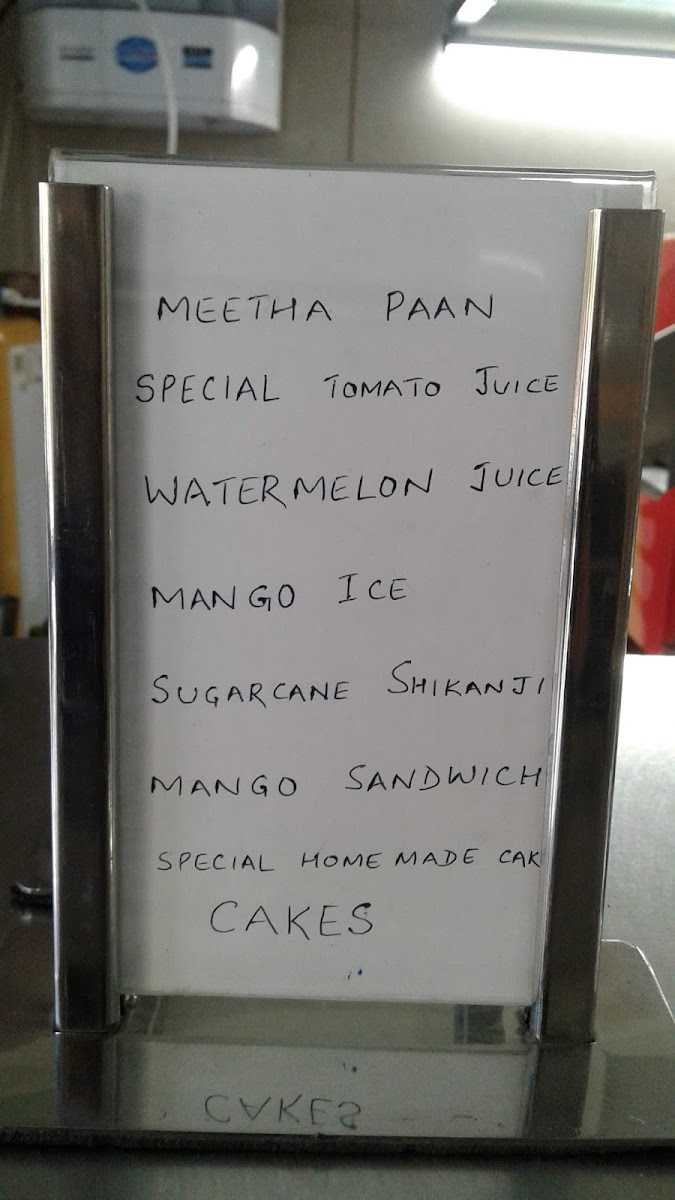 MEETHA PAAN
SPECIAL TOMATO JUICE
WATERMELON JUICE
MANGO ICE
SUGARCANE SHIKANJI
MANGO SANDWICH
SPECIAL HOME MADE CAK
CAKES
CAKES